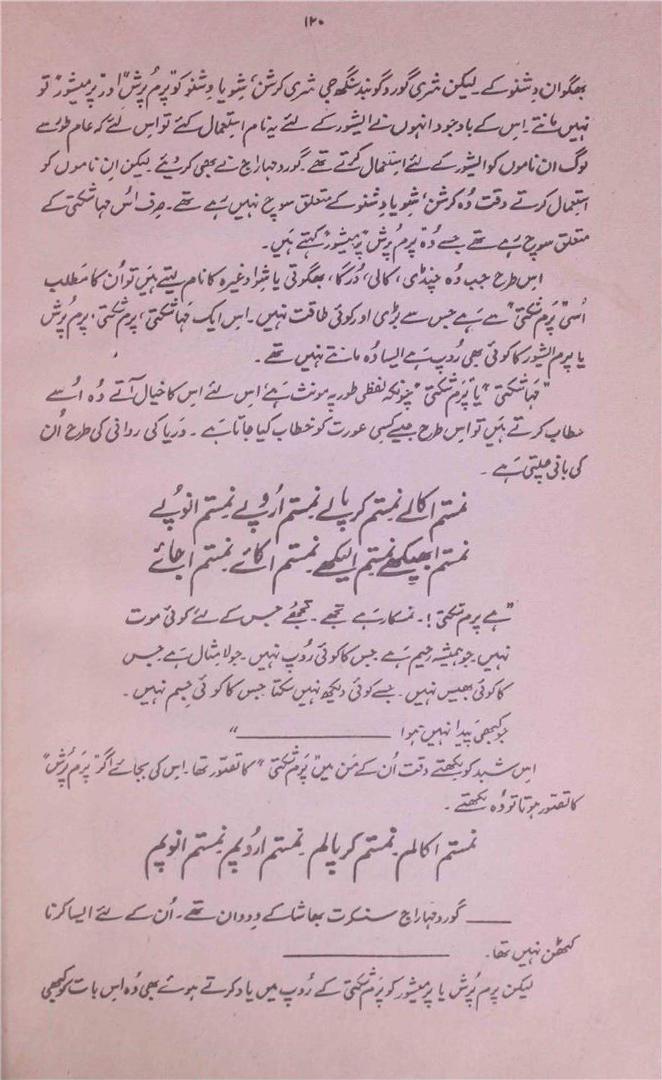 ۱۲۰
بھگوان وشنو کے ۔ لیکن شری گورو گوبند سنگھ جی شری کرشن، شِو یا وشنو کو "پرم پُرش" اور "پرمیشور" تو
نہیں مانتے ۔ اِس کے باوجود انہوں نے ایشور کے لئے یہ نام استعمال کئے تو اس لئے کہ عام طور سے
لوگ ان ناموں کو ایشور کے لئے استعمال کرتے تھے ۔ گورو مہاراج نے بھی کر دیئے لیکن اِن ناموں کو
استعمال کرتے وقت وُہ کرشن، شِو یا وشنو کے متعلق سوچ نہیں رہے تھے ۔ صرف اُس مہا شکتی کے
متعلق سوچ رہے تھے جسے وُہ "پرم پُرش" "پرمیشور" کہتے ہیں ۔
اس طرح جب وہ چنڈی، کالی، دُرگا، بھگوتی یا شِوا وغیرہ کا نام لیتے ہیں تو اُن کا مَطلب
اُسی "پَرم شکتی" سے ہے جس سے بڑی اور کوئی طاقت نہیں ۔ اس ایک مَہا شکتی، پرم شکتی، پرم پُرش
یا پرم ایشور کا کوئی بھی رُوپ ہے ایسا وُہ مانتے نہیں تھے ۔
"مَہا شکتی" یا "پَرم شکتی" چونکہ لفظی طور پہ مونث ہے اس لئے اس کا خیال آتے وُہ اُسے
خطاب کرتے ہیں تو اس طرح جیسے کسی عورت کو خطاب کیا جاتا ہے ۔ دریا کی روانی کی طرح اُن
کی بانی چلتی ہے ۔
نمستم اکالے نمستم کرپالے نمستم ارُوپے نمستم انوُپے
نمستم ابھیکھے نمستم الیکھے نمستم اکائے نمستم اجائے
"ہے پرم شکتی! ۔ نمسکار ہے تجھے ۔ تجھے جس کے لئے کوئی موت
نہیں ۔ جو ہمیشہ رحیم ہے جس کا کوئی رُوپ نہیں ۔ جو لامثال ہے جس
کا کوئی بھیس نہیں ۔ جسے کوئی دیکھ نہیں سکتا جس کا کوئی جسم نہیں ۔
جو کبھی پیدا نہیں ہوا ــــــــــــ "
اس شبد کو لکھتے وقت اُن کے مَن میں "پَرم شکتی" کا تصّور تھا ۔ اس کی بجائے اگر "پَرم پُرش"
کا تصّور ہوتا تو وُہ لکھتے ۔
نمستم اکالم ۔ نمستم کرپالم نمستم ارُوپم نمستم انوپم
ــــــ گورو مہاراج سنسکرت بھاشا کے ودوان تھے ۔ اُن کے لئے ایسا کرنا
کٹھن نہیں تھا ۔ ــــــــــــ
لیکن پرم پُرش یا پرمیشور کو پَرم شکتی کے رُوپ میں یاد کرتے ہوئے بھی وُہ اس بات کو کبھی